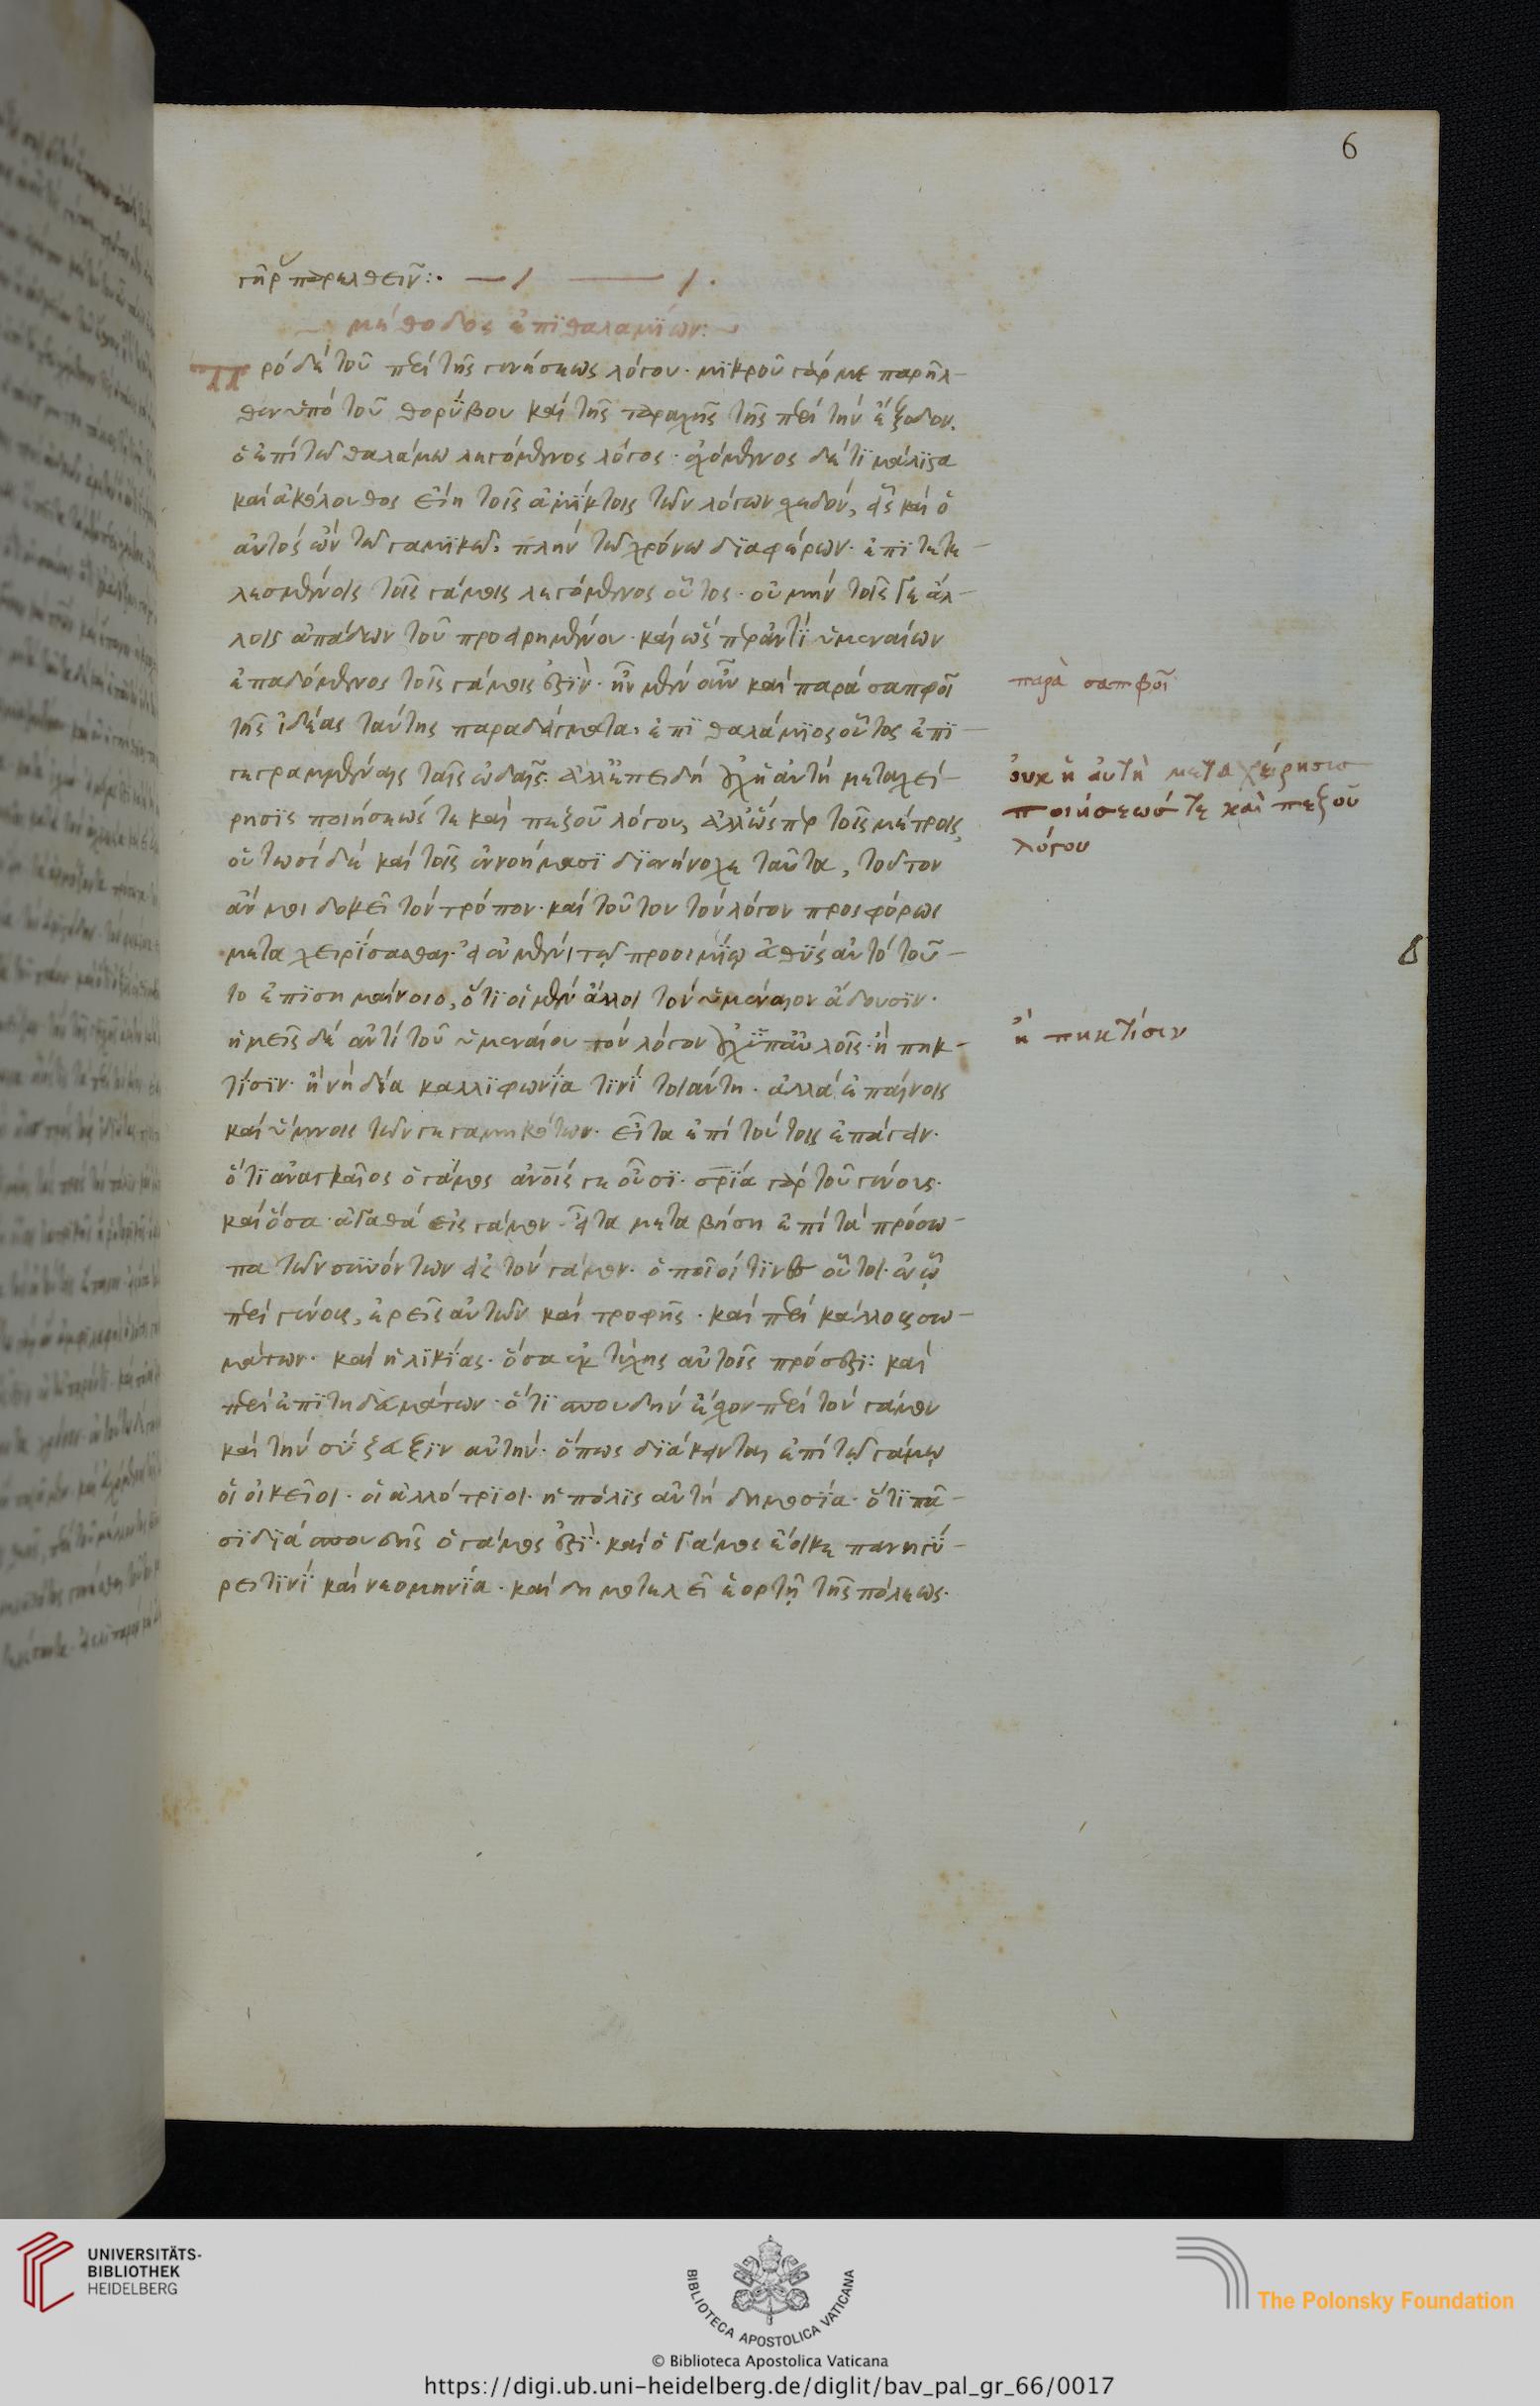 6
γὴρ παρελθεῖν:·
μέθοδος ἐπιθαλαμίων:
Πρὸ δὲ τοῦ περὶ τῆς γενέσεως λόγου· μικροῦ γάρ με παρῆλ-
θεν ὑπὸ τοῦ θορύβου καὶ τῆς ταραχῆς τῆς περὶ τὴν ἔξοδον.
ὁ ἐπὶ τῶ θαλάμω λεγόμενος λόγος· ἐχόμενος δέ τι μάλιστα
καὶ ἀκόλουθος εἴη τοῖς τῶν λόγων σχεδόν, εἷς καὶ ὁ
αὐτὸς ὢν τῶ γαμικῶ· πλὴν τῶ χρόνω διαφέρων· ἐπὶ τετε-
λεσμένοις τοῖς γάμοις λεγόμενος οὗτος· οὐ μὴν τοῖς γε ἄλ-
λοις ἀπάδων τοῦ προειρημένου· καὶ ὥσπερ ἀντὶ ὑμεναίων
ἐπαδόμενος τοῖς γάμοις ἐστίν· ἦν μὲν οὖν καὶ παρὰ σαπφοῖ
τῆς ἰδέας ταύτης παραδείγματα· ἐπιθαλάμιος οὗτος ἐπι-
γεγραμμέναις ταῖς ὠδαῖς· ἀλλ' ἐπειδὴ οὐχ ἡ αὐτὴ μεταχεί-
ρησις ποιήσεώς τε καὶ πεζοῦ λόγου, ἀλλ' ὥσπερ τοῖς μέτροις,
οὑτωσὶ δὲ καὶ τοῖς ἐννοήμασι διενήνοχε ταῦτα, τοῦτον
ἄν μοι δοκεῖ τὸν τρόπον· καὶ τοῦτον τὸν λόγον προσφόρως
μεταχειρίσασθαι· εἰ ἐν μὲν τῷ προοιμίῳ εὐθὺς αὐτὸ τοῦ-
το ἐπισημαίνοιο, ὅτι οἱ μὲν ἄλλοι τὸν ὑμέναιον ἄδουσιν·
ἡμεῖς δὲ ἀντὶ τοῦ ὑμεναίου τὸν λόγον οὐχ ὑπ' αὐλοῖς· ἢ πηκ-
τίσιν· ἢ νὴ δία καλλιφωνία τινὶ τοιαύτη· ἀλλὰ ἐπαίνοις
καὶ ὕμνοις τῶν γεγαμηκότων· εἶτα ἐπὶ τούτοις ἐπάγειν·
ὅτι ἀναγκαῖος ὁ γάμος ἀνοῖς γε οὖσι· σρία γὰρ τοῦ γένους·
καὶ ὅσα ἀγαθὰ εἰς γάμον· εἶτα μεταβήση ἐπὶ τὰ πρόσω-
πα τῶν συνιόντων εἰς τὸν γάμον· ὁποῖοί τινες οὗτοι· ἐν ᾧ
περὶ γένους, ἐρεῖς αὐτῶν καὶ τροφῆς· καὶ περὶ κάλλους σω-
μάτων· καὶ ἡλικίας· ὅσα ἐκ τύχης αὐτοῖς πρόσεστι· καὶ
περὶ ἐπιτηδευμάτων· ὅτι σπουδὴν ἔσχον περὶ τὸν γάμον
καὶ τὴν σύζευξιν αὐτήν· ὅπως διάκεινται ἐπὶ τῷ γάμῳ
οἱ οἰκεῖοι· οἱ ἀλλότριοι· ἡ πόλις αὐτὴ δημοσία· ὅτι πᾶ-
σι διὰ σπουδῆς ὁ γάμος ἐστί· καὶ ὁ γάμος ἔοικε πανηγύ-
ρει τινὶ καὶ νεομηνία· καὶ δημοτελεῖ ἑορτῇ τῆς πόλεως·
παρὰ σαπφοῖ
ὀυχ ἡ ἀυτὴ μεταχείρησισ
ποιήσεωσ τε καὶ πεζοῦ
λόγου
ἢ πηκτίσιν
UNIVERSITÄTS-
BIBLIOTHEK
HEIDELBERG
BIBLIOTECA APOSTOLICA VATICANA
The Polonsky Foundation
© Biblioteca Apostolica Vaticana
https://digi.ub.uni-heidelberg.de/diglit/bav_pal_gr_66/0017